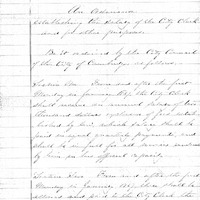 An Ordinance
Establishing the Salary of the City Clerk
and for other purposes.
Be it ordained by the City Council
of the City of Cambridge as follows.
Section One. From and after the first
Monday in January the City Clerk
shall receive an annual salary of two
thousand dollars
in equal quarterly payments, and
shall be in full for all services rendered
by him in his official capacity.
Section Two. From and after the first
Monday in January there shall be
and paid to the City Clerk the